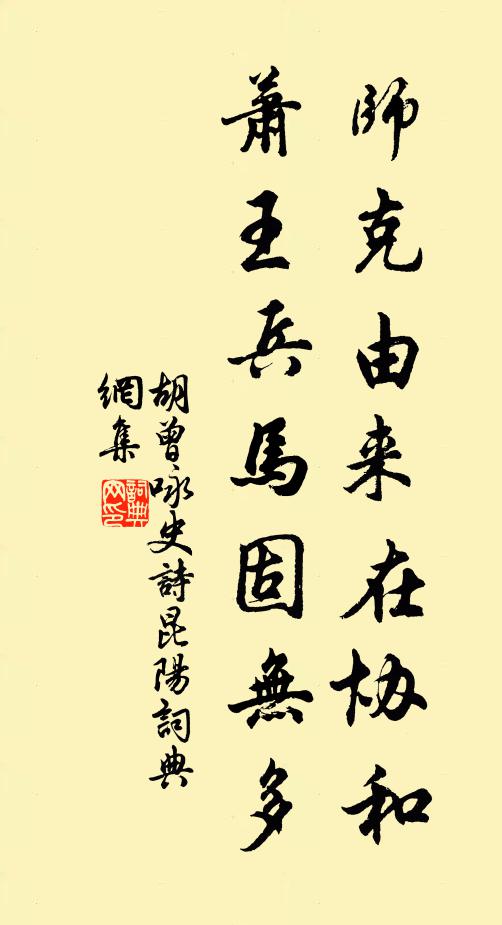 師克由来在协和
蕭王兵馬固無多
胡曾咏史詩昆陽詞典
網集
詞典
网印